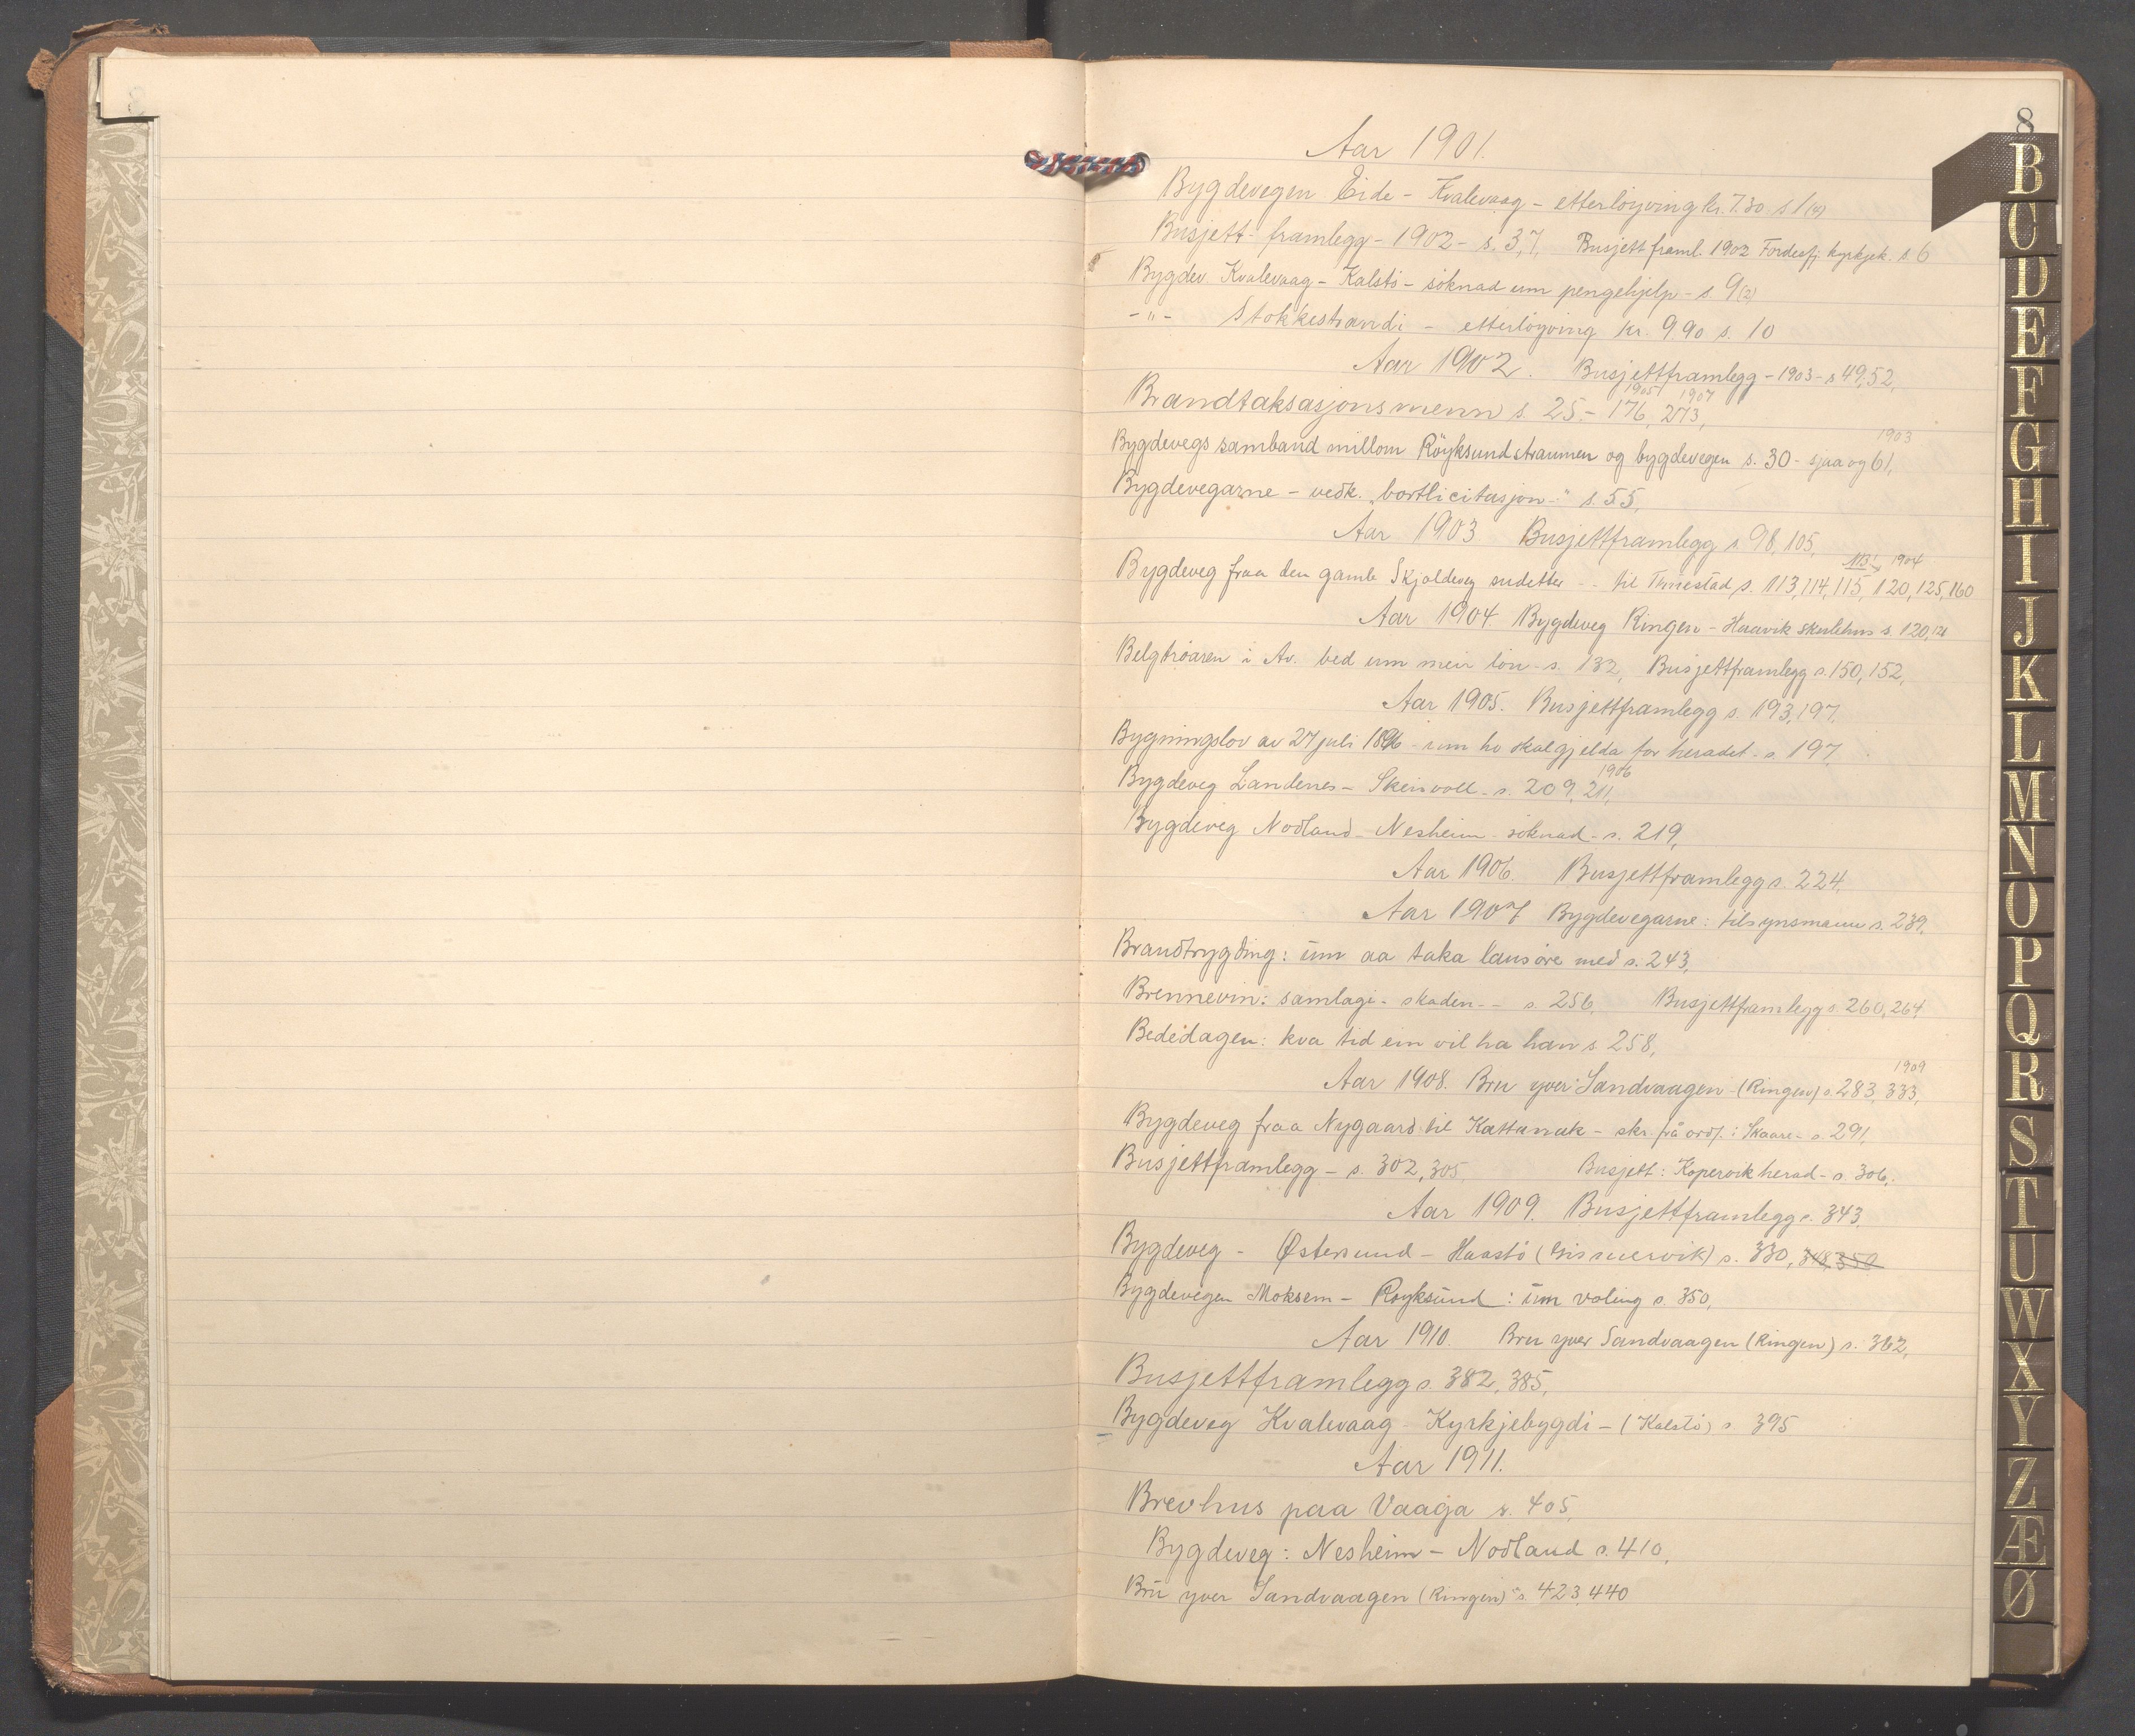 8
Aar 1901.
Bygdevegen Eide - Kvalevaag - etterløyving kr. 7.30 s 1 (4)
Busjett-framlegg - 1902 - s. 3,7, Busjettframl. 1902 Fordesfj. kyrkjek. s 6
Bygdev. Kvalevaag - Kalstö - söknad um pengehjelp - s. 9 (2)
- " - Stokkestrandi - etterlöyving kr. 9.90 s. 10
Aar 1902. Busjettframlegg - 1903 - s 49,52,
1905 1907
Brandtaksasjonsmenn s. 25 - 176, 273,
1903
Bygdevegs samband millom Röyksundstraumen og bygdevegen s. 30 - sjaa og 61,
Bygdevegarne - vedk. "bortlicitasjon -" s. 55,
Aar 1903 Busjettframlegg s. 98, 105,
NB! 1904
Bygdeveg fraa den gamle Skjoldeveg sudetter - - til Tunestad s. 113, 114, 115, 120, 125, 160
Aar 1904. Bygdeveg Ringen - Haavik skulehus s. 120, 121
Belgtröaren i Av. bed um meir lön - s. 132, Busjettframlegg s. 150, 152,
Aar 1905. Busjettframlegg s. 193, 197.
Bygningslov av 27 juli 1896 - um ho skal gjelda for heradet - s. 197,
1906
Bygdeveg Landenes - Skeisvoll - s. 209, 211,
Bygdeveg Nodland - Nesheim - söknad - s. 219,
Aar 1906. Busjettframlegg s. 224,
Aar 1907 Bygdevegarne: tilsynsmann s. 239,
Brandtrygding: um aa taka lausöre med s. 243,
Brennevin: samlagi - skaden - - s. 256, Busjettframlegg s. 260, 264
Bededagen: kva tid ein vil ha han s 258,
1909
Aar 1908. Bru yver Sandvaagen - (Ringen) s. 283, 333,
Bygdeveg fraa Nygaard til Kattanak - skr. frå ordf. i Skaare - s. 291,
Busjettframlegg - s. 302, 305, Busjett: Kopervik herad - s. 306,
Aar 1909. Busjettframlegg s. 343,
Bygdeveg - Østersund - Haastö (Gismervik) s. 330, 348, 350
Bygdevegen Moksem - Royksund: um voling s. 350,
Aar 1910. Bru yver Sandvaagen (Ringen) s. 362,
Busjettframlegg s. 382, 385,
Bygdeveg Kvalevaag - Kyrkjebygdi - (Kalstö) s 395
Aar 1911.
Brevhus paa Vaagja s. 405,
Bygdeveg: Nesheim - Nodland s. 410,
Bru yver Sandvaagen (Ringen) s. 423, 440
B
C
D
E
F
G
H
I
J
K
L
M
N
O
P
Q
R
S
T
U
W
X
Y
Z
Æ
Ø